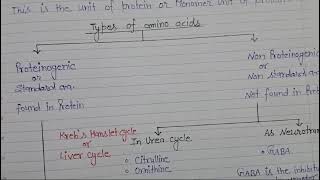 This is the unit of protein or Monomer unit of
Types of amino acids
Proteinogenic
or
Standard a.a.
found in Protein
Non Proteinogenic
or
Non standard a.a.
Not found in
Kreb's Hanslet cycle
or
Liver cycle
In Urea cycle
• Citrulline
• Ornithine
As
• GABA
GABA is the